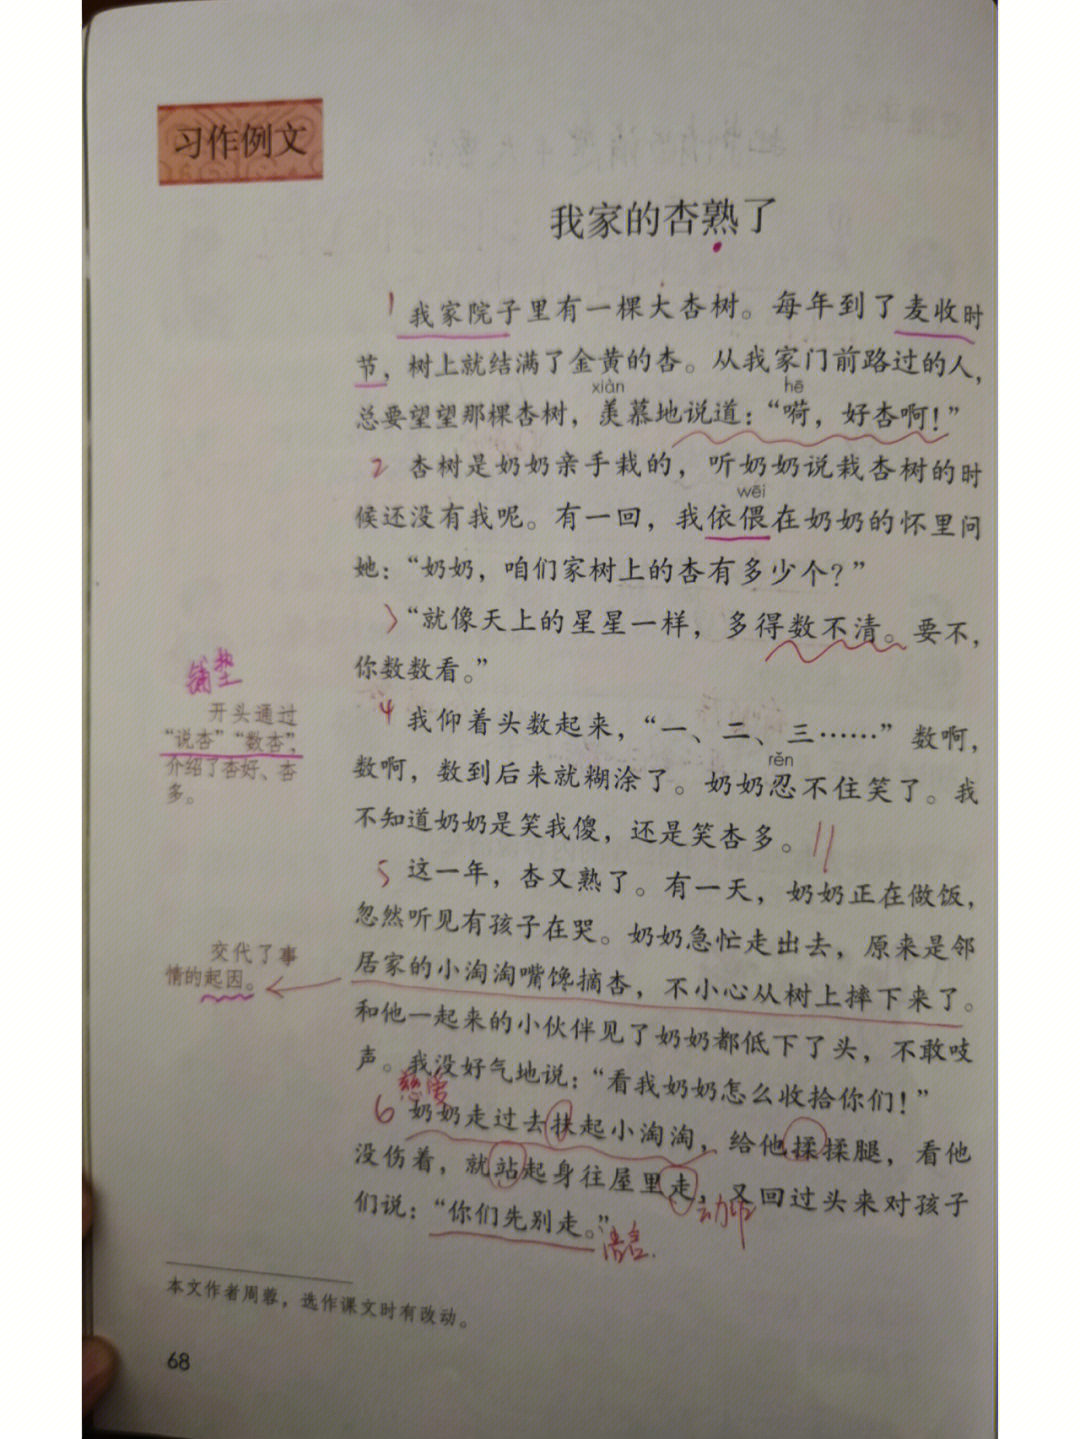 习作例文
我家的杏熟了
1 我家院子里有一棵大杏树。每年到了麦收时
节，树上就结满了金黄的杏。从我家门前路过的人，
xiàn hē
总要望望那棵杏树，羡慕地说道：“嗬，好杏啊！”
2 杏树是奶奶亲手栽的，听奶奶说栽杏树的时
wēi
候还没有我呢。有一回，我依偎在奶奶的怀里问
她：“奶奶，咱们家树上的杏有多少个？”
3 “就像天上的星星一样，多得数不清。要不，
你数数看。”
铺垫
开头通过
“说杏”“数杏”，
介绍了杏好、杏
多。
4 我仰着头数起来，“一、二、三……”数啊，
rěn
数啊，数到后来就糊涂了。奶奶忍不住笑了。我
不知道奶奶是笑我傻，还是笑杏多。
5 这一年，杏又熟了。有一天，奶奶正在做饭，
忽然听见有孩子在哭。奶奶急忙走出去，原来是邻
交代了事
情的起因。
居家的小淘淘嘴馋摘杏，不小心从树上摔下来了。
和他一起来的小伙伴见了奶奶都低下了头，不敢吱
声。我没好气地说：“看我奶奶怎么收拾你们！”
慈爱
6 奶奶走过去扶起小淘淘，给他揉揉腿，看他
没伤着，就站起身往屋里走，又回过头来对孩子
动作
们说：“你们先别走。”
语言
本文作者周蓉，选作课文时有改动。
68